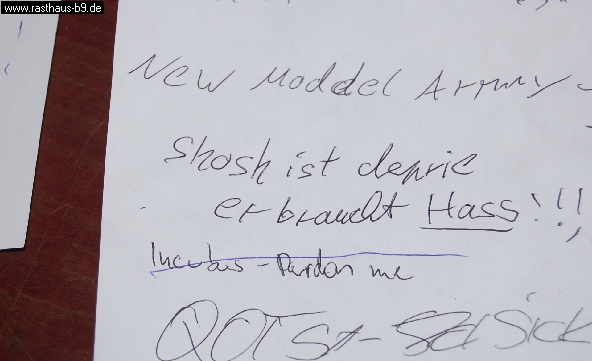 www.rasthaus-b9.de
New Moddel Army -
Skosh ist deprie
er braucht Hass!!!
Incubus - Pardon me
QOTSA - Sick